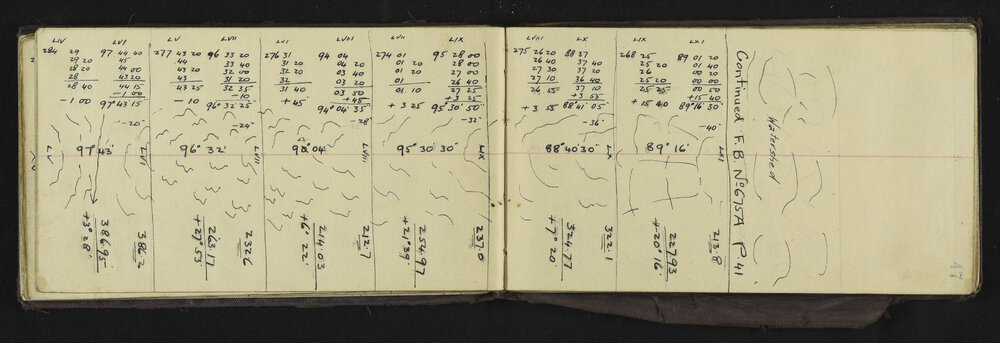 LIV LVI
284 29 97 44 40
29 20 45
28 20 44 00
28 43 20
28 40 44 15
-1 00 -1 00
97° 43' 15"
-20"
LV 97° 43' LVI
386.2
386.95
+3° 28'
LV LVII
277 43 20 96 33 20
44 33 40
43 20 32 00
43 31 20
43 25 32 35
-10 -10
96° 32' 25"
-24"
96° 32' LVII
232.6
263.17
+27° 53'
LVI LVIII
276 31 94 04
31 20 04 20
31 20 03 40
32 03 20
31 40 03 50
+45 +45
94° 04' 35"
-28"
04' LVIII
212.7
214.03
+6° 22'
LVII LIX
274 01 95 28 00
01 20 28 00
01 20 27 00
01 26 40
01 10 27 25
+3 25 +3 25
95° 30' 50"
-32"
95° 30' 30" LIX
237.0
254.97
+21° 39'
LVIII LX
275 26 20 88 37
26 40 37 40
27 30 37 20
27 10 36 40
26 55 37 10
+3 55 +3 55
88° 41' 05"
-36"
88° 40' 30" LX
322.1
324.77
+7° 20'
LIX LXI
268 25 89 01 20
25 20 01 40
26 00 20
25 20 00 50
25 25 00 50
+15 40 +15 40
89° 16' 30"
-40"
89° 16' LXI
213.8
227.93
+20° 16'
Continued F.B. No 675A P.41
Watershed
47